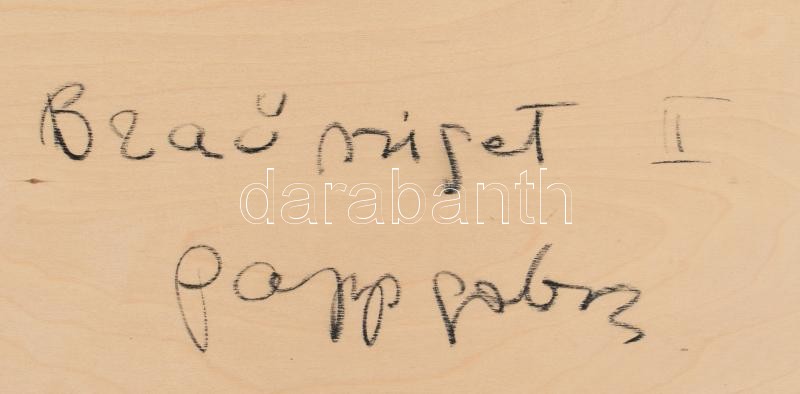 Brač sziget II
darabanth
papp gábor